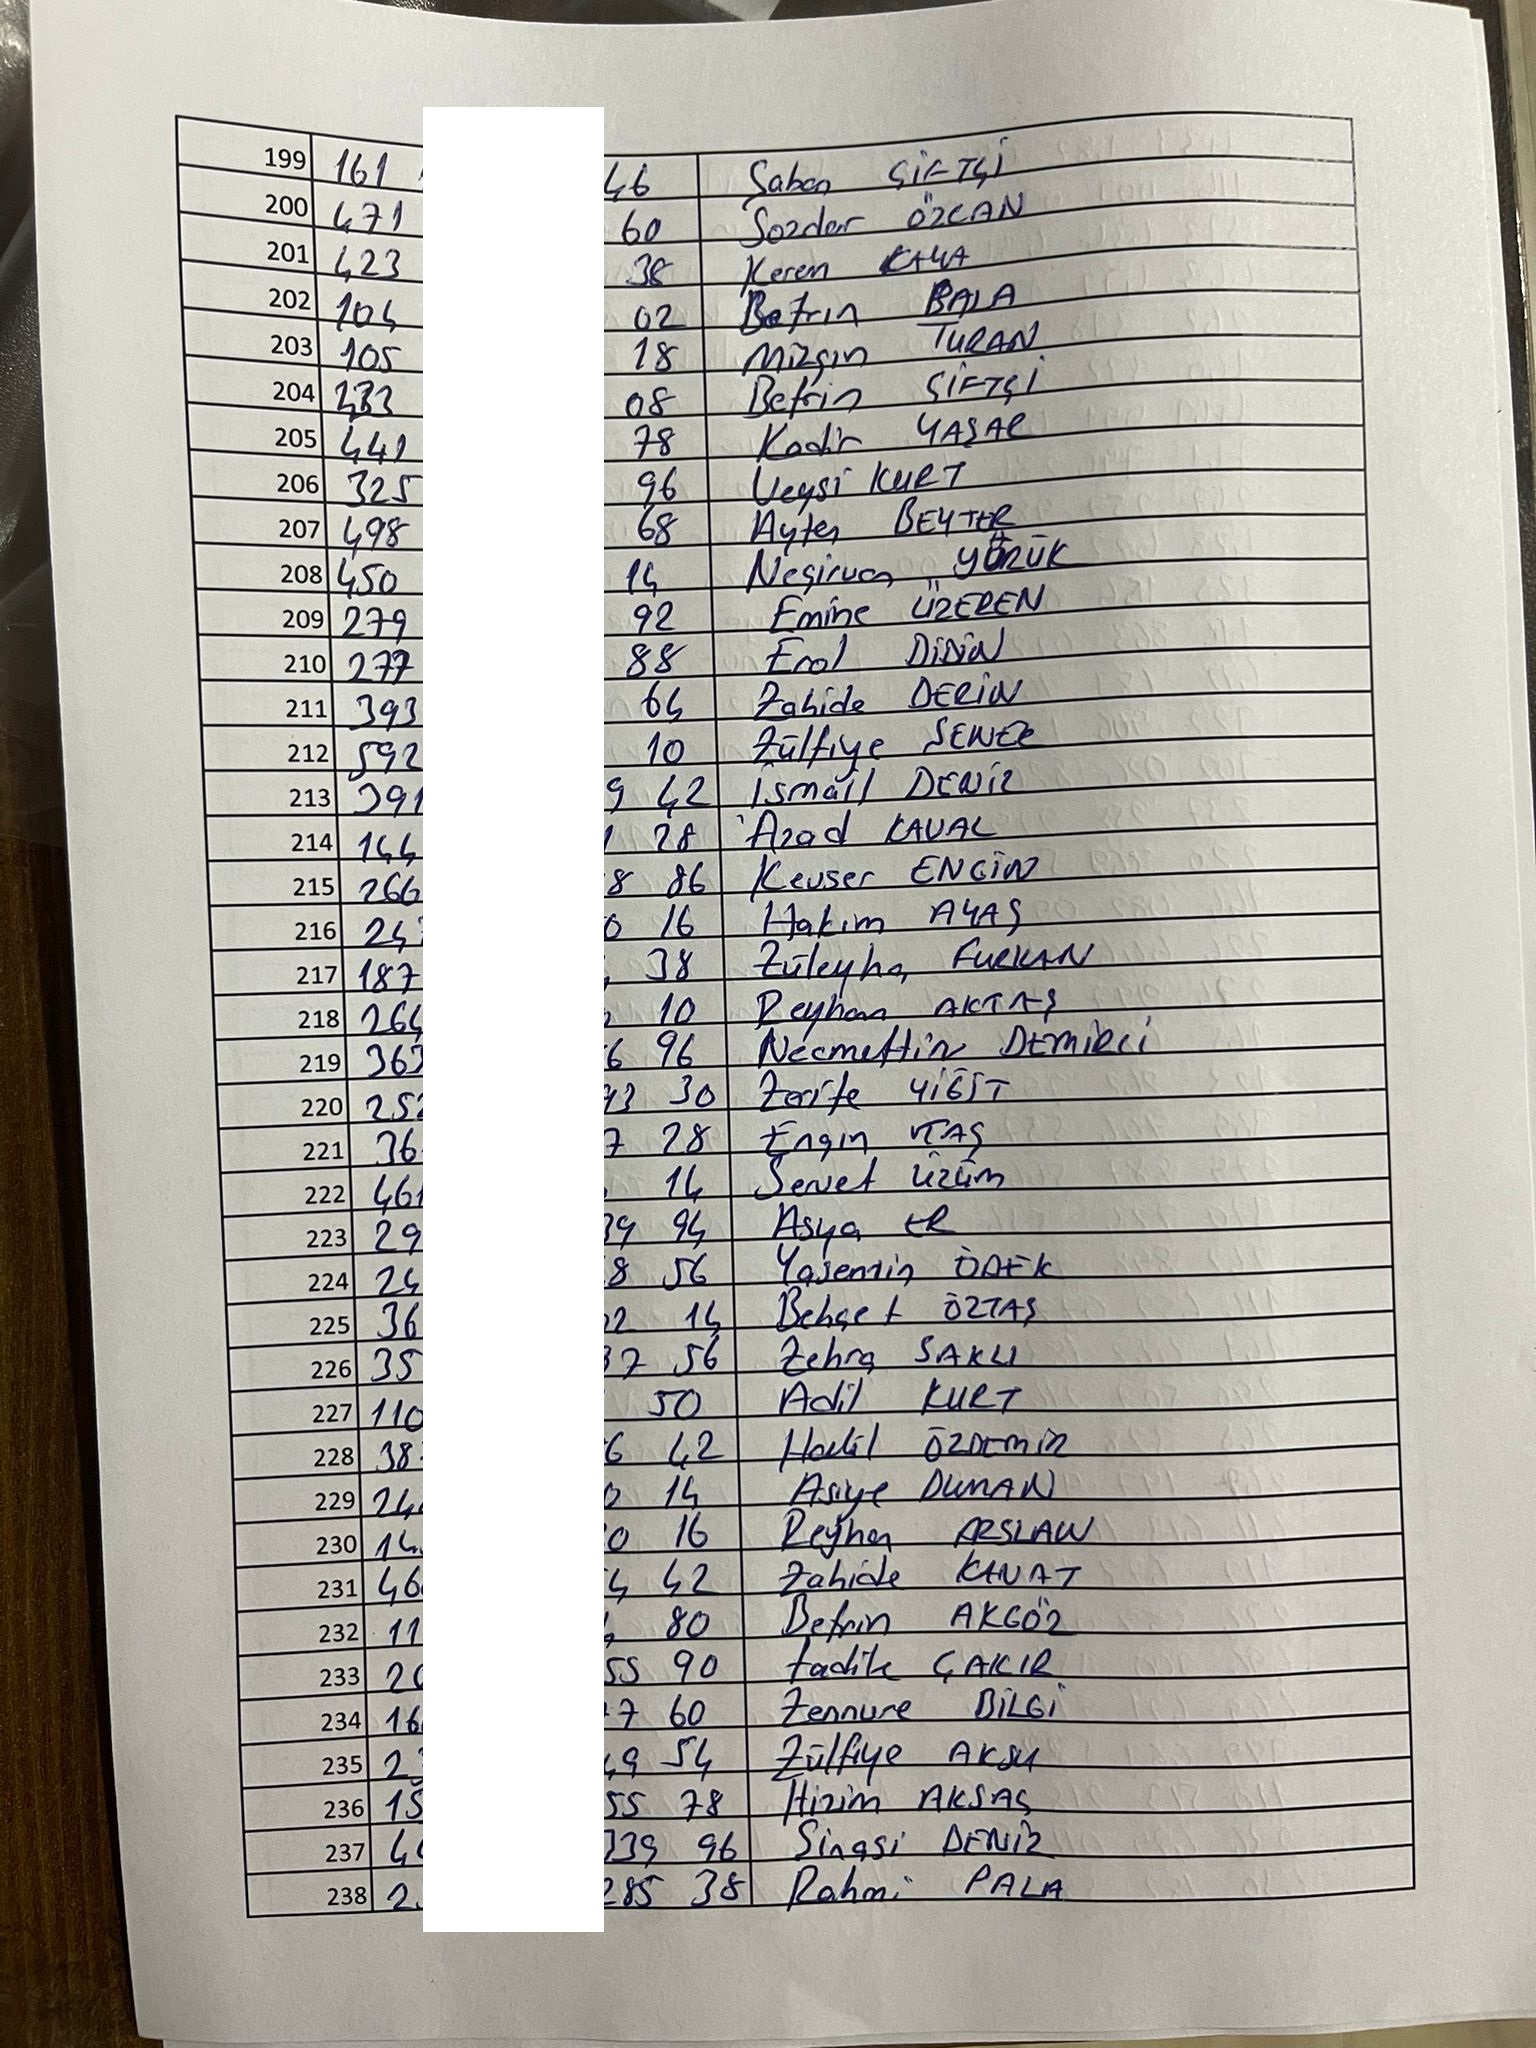 199 161 46 Şaban ÇİFTÇİ
200 471 60 Sozdar ÖZCAN
201 423 38 Kerem KAYA
202 104 02 Befrin BALA
203 105 18 Mizgin TURAN
204 233 08 Befrin ÇİFTÇİ
205 441 78 Kadir YAŞAR
206 325 96 Veysi KURT
207 498 68 Ayten BEYTER
208 450 14 Neçirvan YÖRÜK
209 279 92 Emine ÜZEREN
210 277 88 Erol DİDİN
211 393 64 Zahide DERİN
212 592 10 Zülfiye ŞENER
213 391 9 42 İsmail DENİZ
214 144 28 Azad KAVAL
215 266 8 86 Kevser ENGİN
216 24 0 16 Hakim AYAŞ
217 187 38 Züleyha FURKAN
218 264 10 Reyhan AKTAŞ
219 363 6 96 Necmettin DEMİRCİ
220 252 93 30 Zarife YİĞİT
221 36 7 28 Engin TAŞ
222 461 14 Servet ÜZÜM
223 29 39 94 Asya ER
224 24 8 56 Yasemin ÖDEK
225 36 02 14 Behçet ÖZTAŞ
226 35 37 56 Zehra SAKLI
227 110 50 Adil KURT
228 38 6 42 Halil ÖZDEMİR
229 24 0 14 Asiye DUMAN
230 14 0 16 Reyhan ARSLAN
231 46 4 42 Zahide KANAT
232 11 80 Befrin AKGÖZ
233 20 55 90 Fadile ÇAKIR
234 16 7 60 Zennure BİLGİ
235 2 49 54 Zülfiye AKSU
236 15 55 78 Hizim AKSAÇ
237 4 339 96 Şinasi DENİZ
238 2 285 38 Rahmi PALA